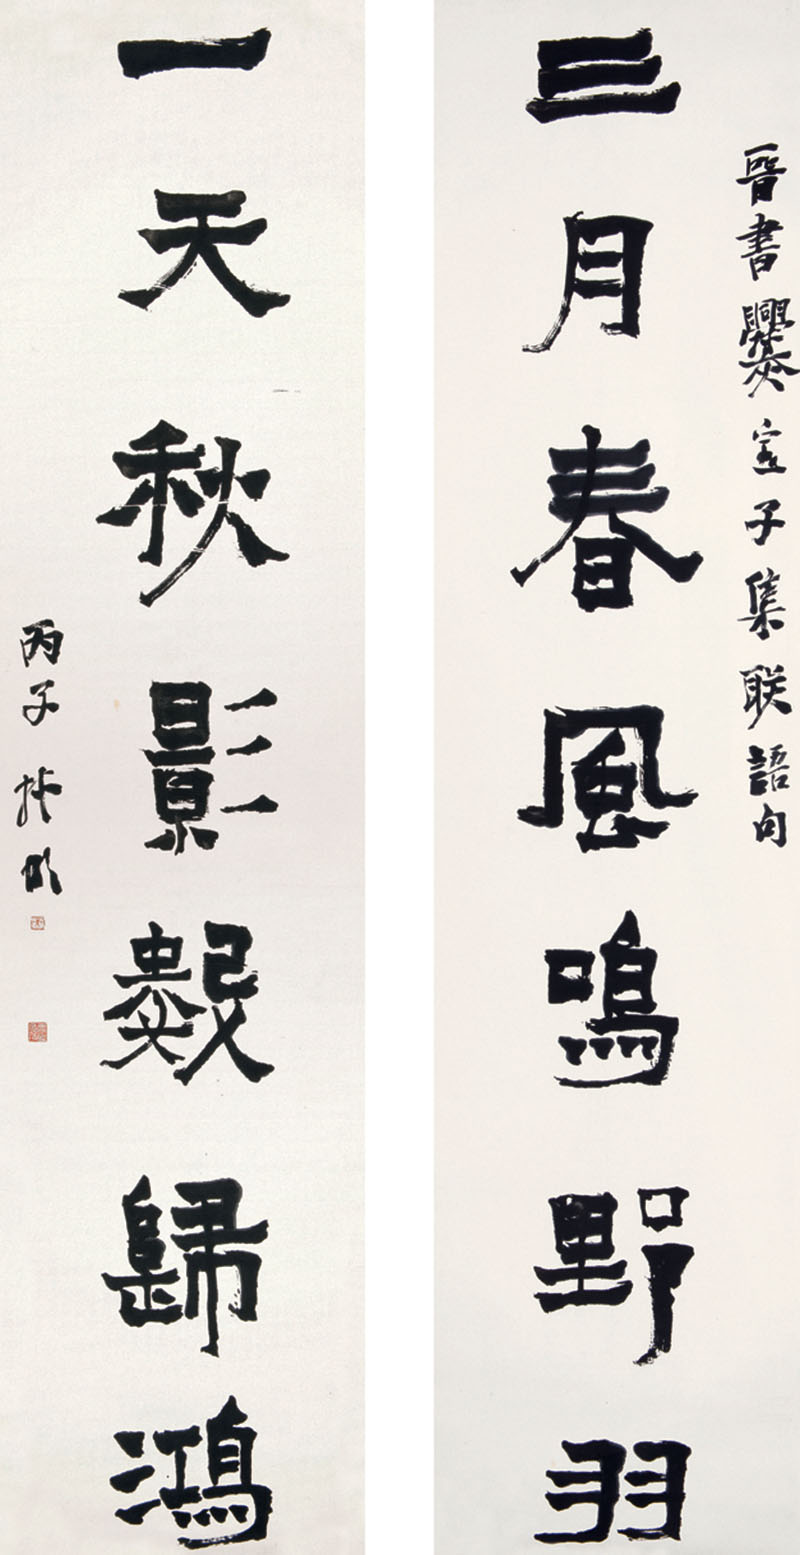 晉書爨宝子集联語句
三月春風鳴野羽
一天秋影歸鴻
丙子